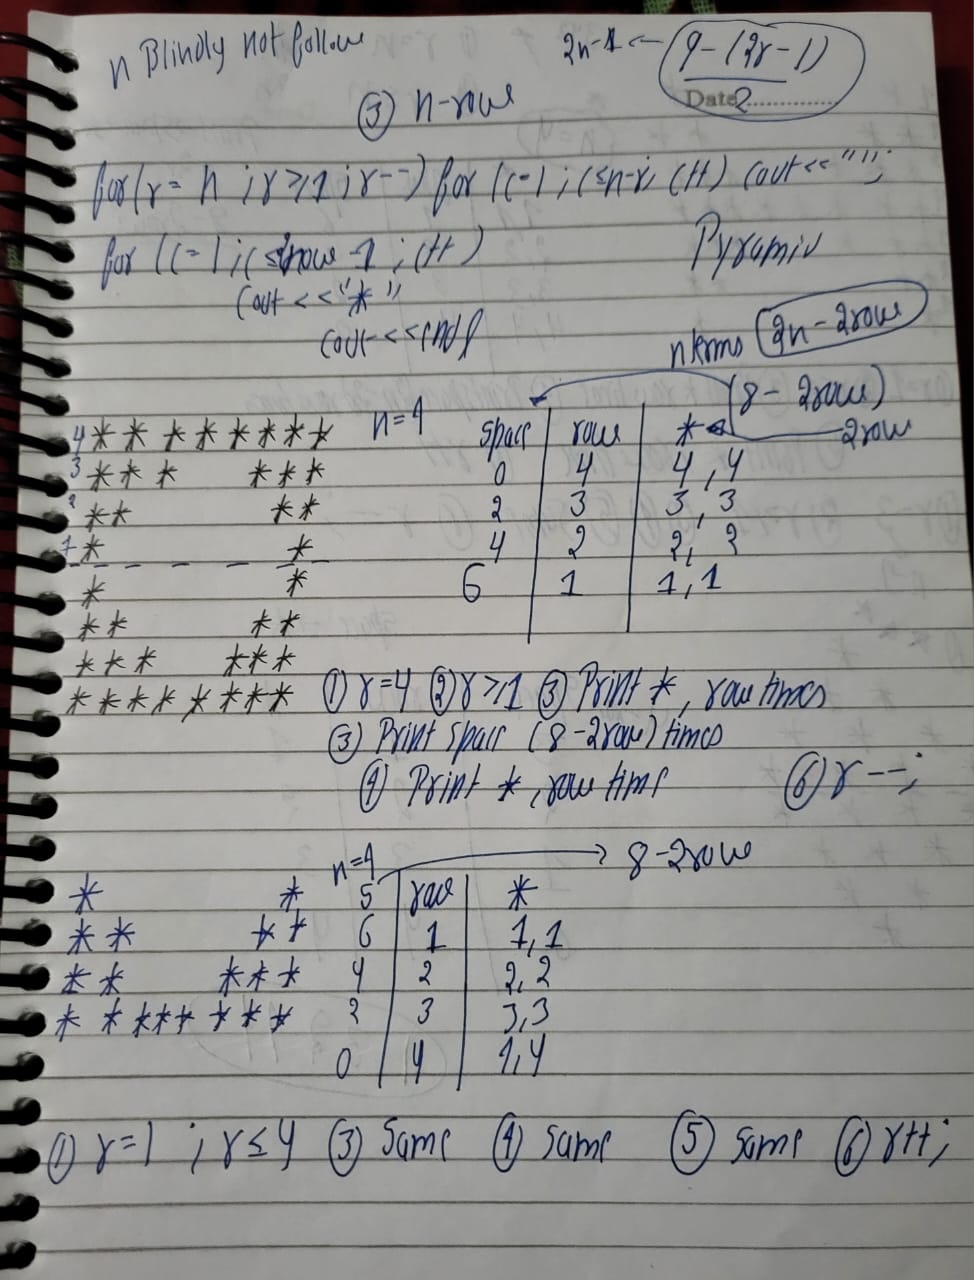 n Blindly not follow
2n-1 ← 9-(2r-1)
Date 2
③ n-row
for(r= n ; r≥1 ; r--) for (c=1 ; c≤n-r, c++) cout<<" ";
for (c=1 ; c≤ row-1 ; c++)
cout<<"*"
cout<<endl
Pyramid
n terms 2n-2row
(8-2row)
n=4
space row * 2row
4 * * * * * * * *
0 4 4,4
3 * * * * * *
2 3 3,3
2 * * * *
4 2 2,2
1 * *
6 1 1,1
* *
* * * *
* * * * * *
* * * * * * * *
① r=4 ② r≥1 ③ Print *, row times
③ Print space (8-2row) times
④ Print *, row time
⑥ r--;
n=4 → 8-2row
* * 5 row *
* * * * 6 1 1,1
* * * * * 4 2 2,2
* * * * * * * * 2 3 3,3
0 4 4,4
① r=1 ; r≤4 ③ Same ④ Same ⑤ Same ⑥ r++;